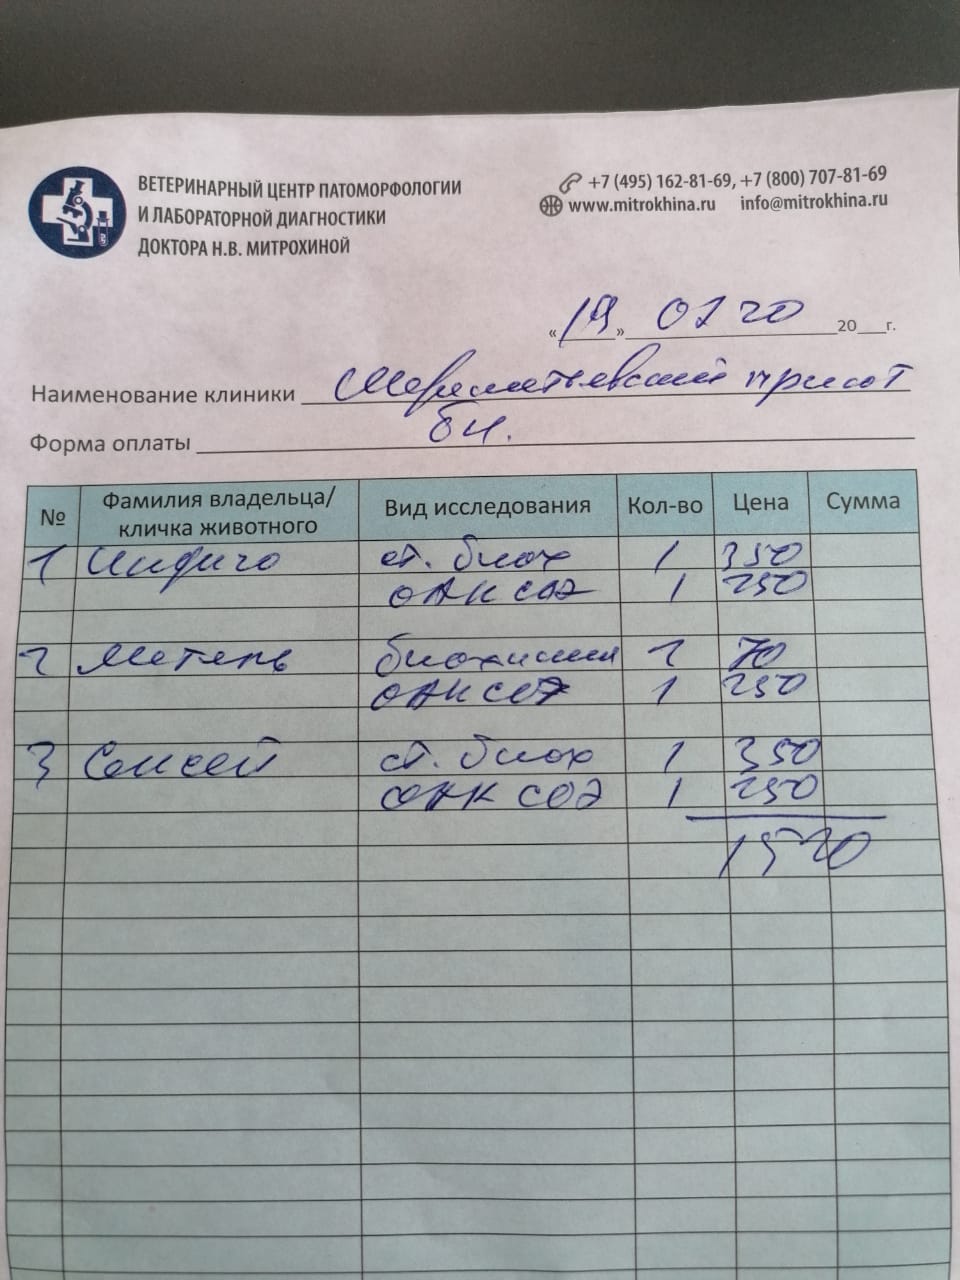 ВЕТЕРИНАРНЫЙ ЦЕНТР ПАТОМОРФОЛОГИИ
И ЛАБОРАТОРНОЙ ДИАГНОСТИКИ
ДОКТОРА Н.В. МИТРОХИНОЙ
+7 (495) 162-81-69, +7 (800) 707-81-69
www.mitrokhina.ru info@mitrokhina.ru
«19» 02 20 20 г.
Наименование клиники Шереметьевский приют
Форма оплаты
№ Фамилия владельца/ кличка животного Вид исследования Кол-во Цена Сумма
1 Индиго ст. биох 1 350
ОАК СОЭ 1 250
2 Метель биохимия 1 70
ОАК СОЭ 1 250
3 Сенсей ст. биох 1 350
ОАК СОЭ 1 250
1520